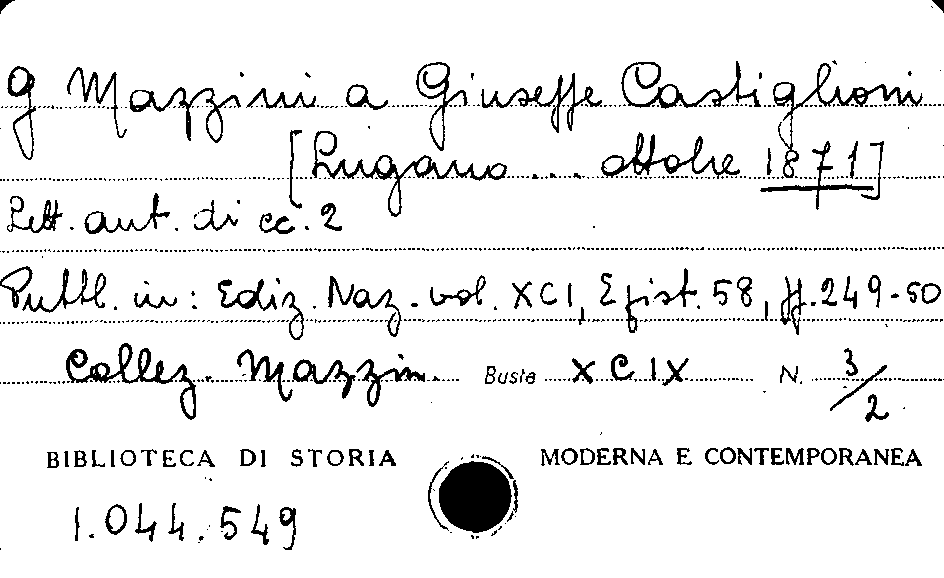 G Mazzini a Giuseppe Castiglioni
[Lugano ... ottobre 1871]
Lett. aut. di cc. 2
Pubbl. in: Ediz. Naz. vol. XCI, Epist. 58, pp. 249-50
Collez. Mazzin. Busta XCIX N. 3/2
BIBLIOTECA DI STORIA MODERNA E CONTEMPORANEA
1.044.549